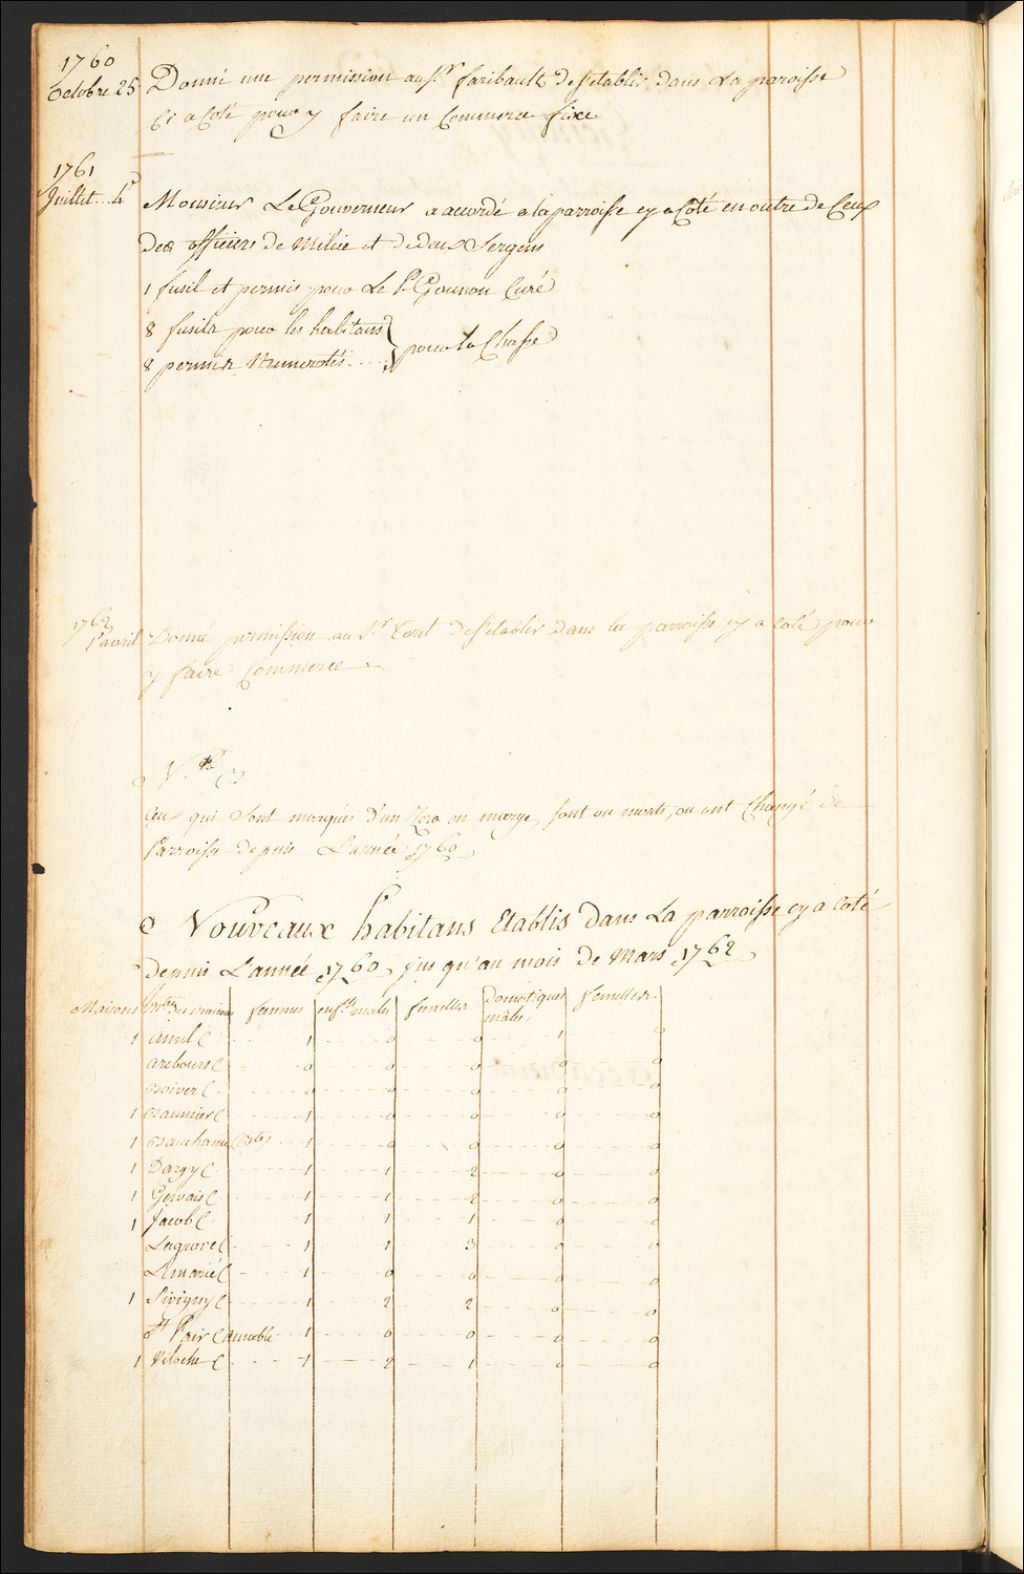 1760
Octobre 25 Donné une permission au Sr. faribault de s'etablir dans La paroisse
Ci a Coté pour y faire un Commerce fixe
1761
Juillet 4 Monsieur Le Gouverneur a accordé a la parroisse cy a Coté en outre de Ceux
des officiers de Milice et de deux Sergens
1 fusil et permis pour Le Sr. Gounon Curé
8 fusils pour les habitans
8 permis Numerotés .... } pour la Chasse
1762
1 avril Donné permission au Sr. de s'etablir dans la parroisse cy a coté pour
y faire Commerce
o N.
Ceux qui sont marqués d'un Zero en marge, sont ou morts, ou ont Changé de
Parroisse depuis L'année 1760.
o Nouveaux habitans Etablis dans La parroisse cy a Coté
depuis L'année 1760, jusqu'au mois de Mars 1762,
Maisons femmes enfts. males femelles Domestiques males. femelles
1 1 0 0 1 0
0 0 0 0 0
0 0 0 0 0
1 1 0 0 0 0
1 1 0 0 0 0
1 Dargy 1 1 2 0 0
1 Gervais 1 1 2 0 0
1 Jacob 1 1 1 0 0
Lagrave 1 1 3 0 0
Lemarié 1 0 0 0 0
1 Sivigny 1 2 2 0 0
St 1 0 0 0 0
1 1 2 1 0 0